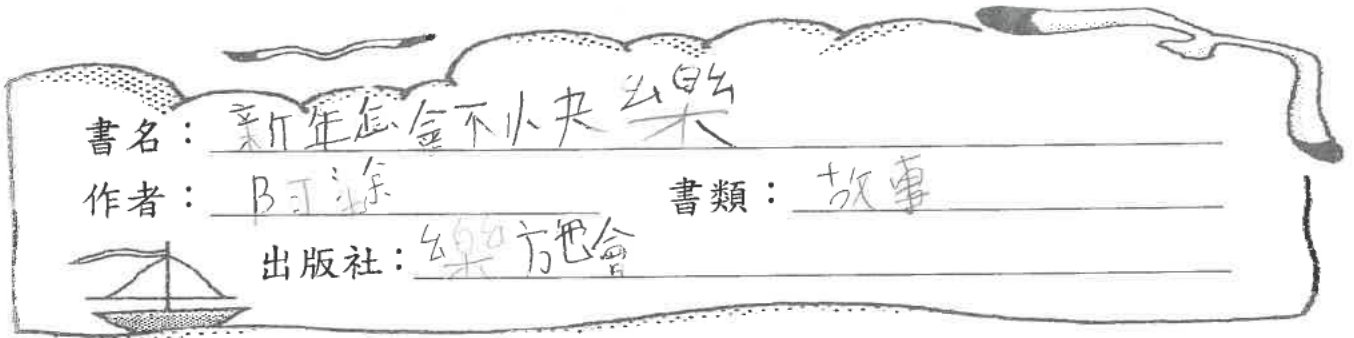 書名：新年怎會不快樂
作者：阿涂 書類：故事
出版社：樂施會